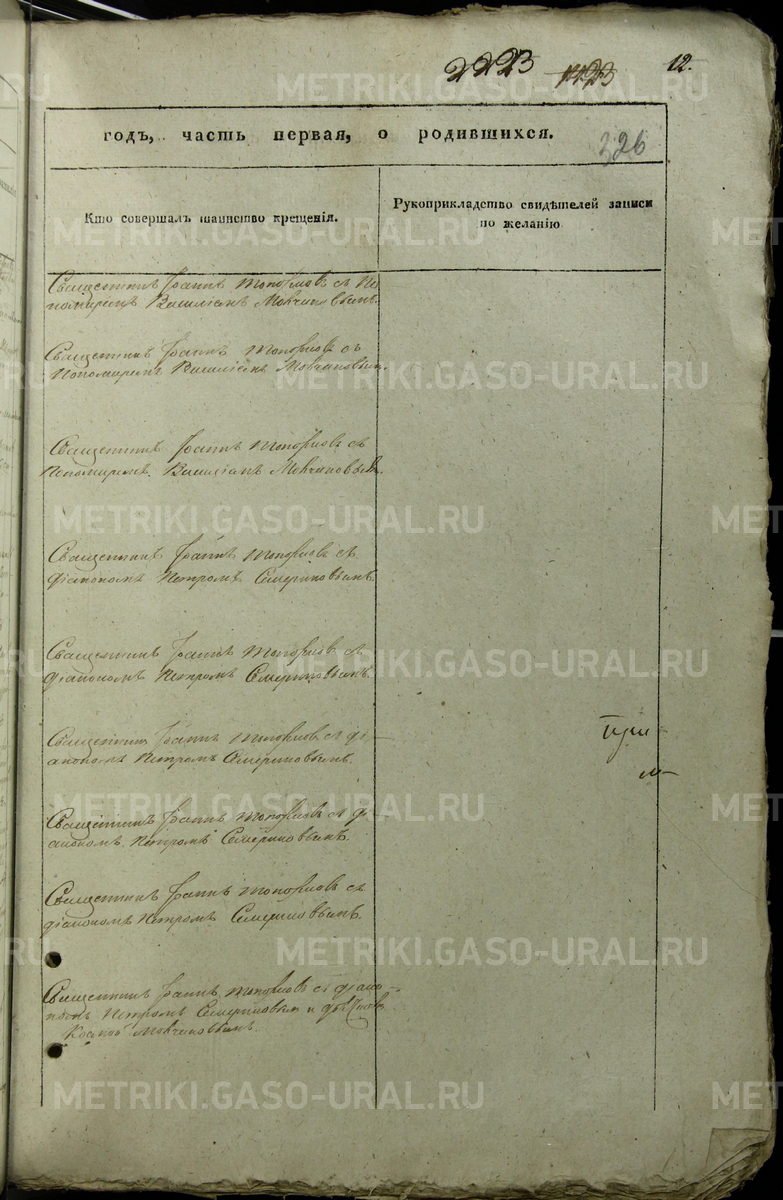 2223 1123 12.
годъ, часть первая, о родившихся.
326
Кто совершалъ таинство крещенія.
Рукоприкладство свидѣтелей записи
по желанію
Священникъ Іоаннъ Топорковъ съ По
номаремъ Василіемъ Мовчановымъ.
Священникъ Іоаннъ Топорковъ съ
Пономаремъ Василіемъ Мовчановым.
Священникъ Іоаннъ Топорковъ съ
Пономаремъ Василіемъ Мовчановымъ
Священникъ Іоаннъ Топорковъ съ
діакономъ Петромъ Семриновымъ.
Священникъ Іоаннъ Топорковъ съ
діакономъ Петромъ Семриновымъ.
Священникъ Іоаннъ Топорковъ съ ді
акономъ Петромъ Семриновымъ.
Священникъ Іоаннъ Топорковъ съ ді
акономъ Петромъ Семриновымъ.
Священникъ Іоаннъ Топорковъ съ
діакономъ Петромъ Семриновымъ.
Священникъ Іоаннъ Топорковъ съ діако-
номъ Петромъ Семриновым и
Мовчановымъ.
METRIKI.GASO-URAL.RU